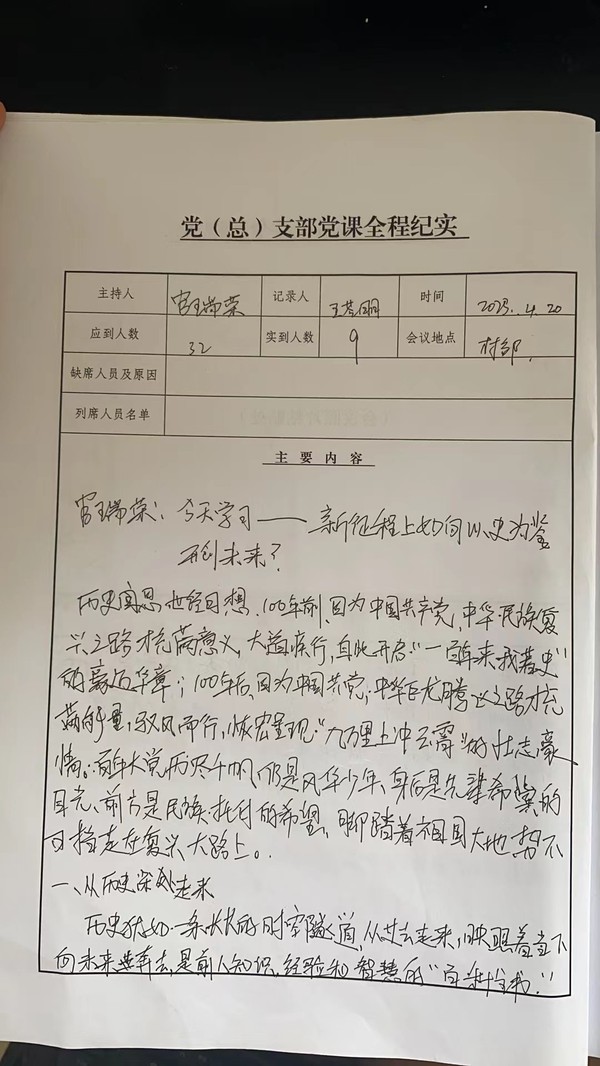 党（总）支部党课全程纪实
主持人 官瑞荣 记录人 时间 2025.4.20
应到人数 32 实到人数 9 会议地点 村部.
缺席人员及原因
列席人员名单
主要内容
官瑞荣：今天学习——新征程上如何以史为鉴
开创未来？
历史寓思 世经目想，100年前，因为中国共产党，中华民族复
兴之路才充满意义，大道疾行，自此开启“一百年来我著史”
的豪迈华章；100年后，因为中国共产党，中华巨龙腾兴之路才充
满能量，驭风而行，恢宏呈现“九万里上冲云霄”的壮志豪
情。百年大党，历尽千帆，仍是风华少年、身后是先辈希冀的
目光、前方是民族托付的希望，脚踏着祖国大地 势不
可挡走在复兴大路上。
一、从历史深处走来
历史犹如一条长长的时空隧道，从过去走来，映照着当下
向未来进奔去，是前人知识、经验和智慧的“百科全书.”